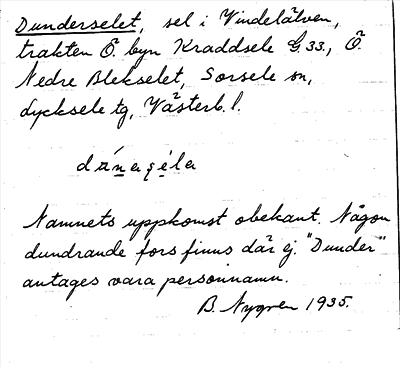 Dunderselet, sel i Vindelälven,
trakten Ö. byn Kraddsele G.33., Ö.
Nedre Blekselet, Sorsele sn,
Lycksele tg, Västerb. l.
Namnets uppkomst obekant. Någon
dundrande fors finns där ej. "Dunder"
antages vara personnamn.
B. Nygren 1935.